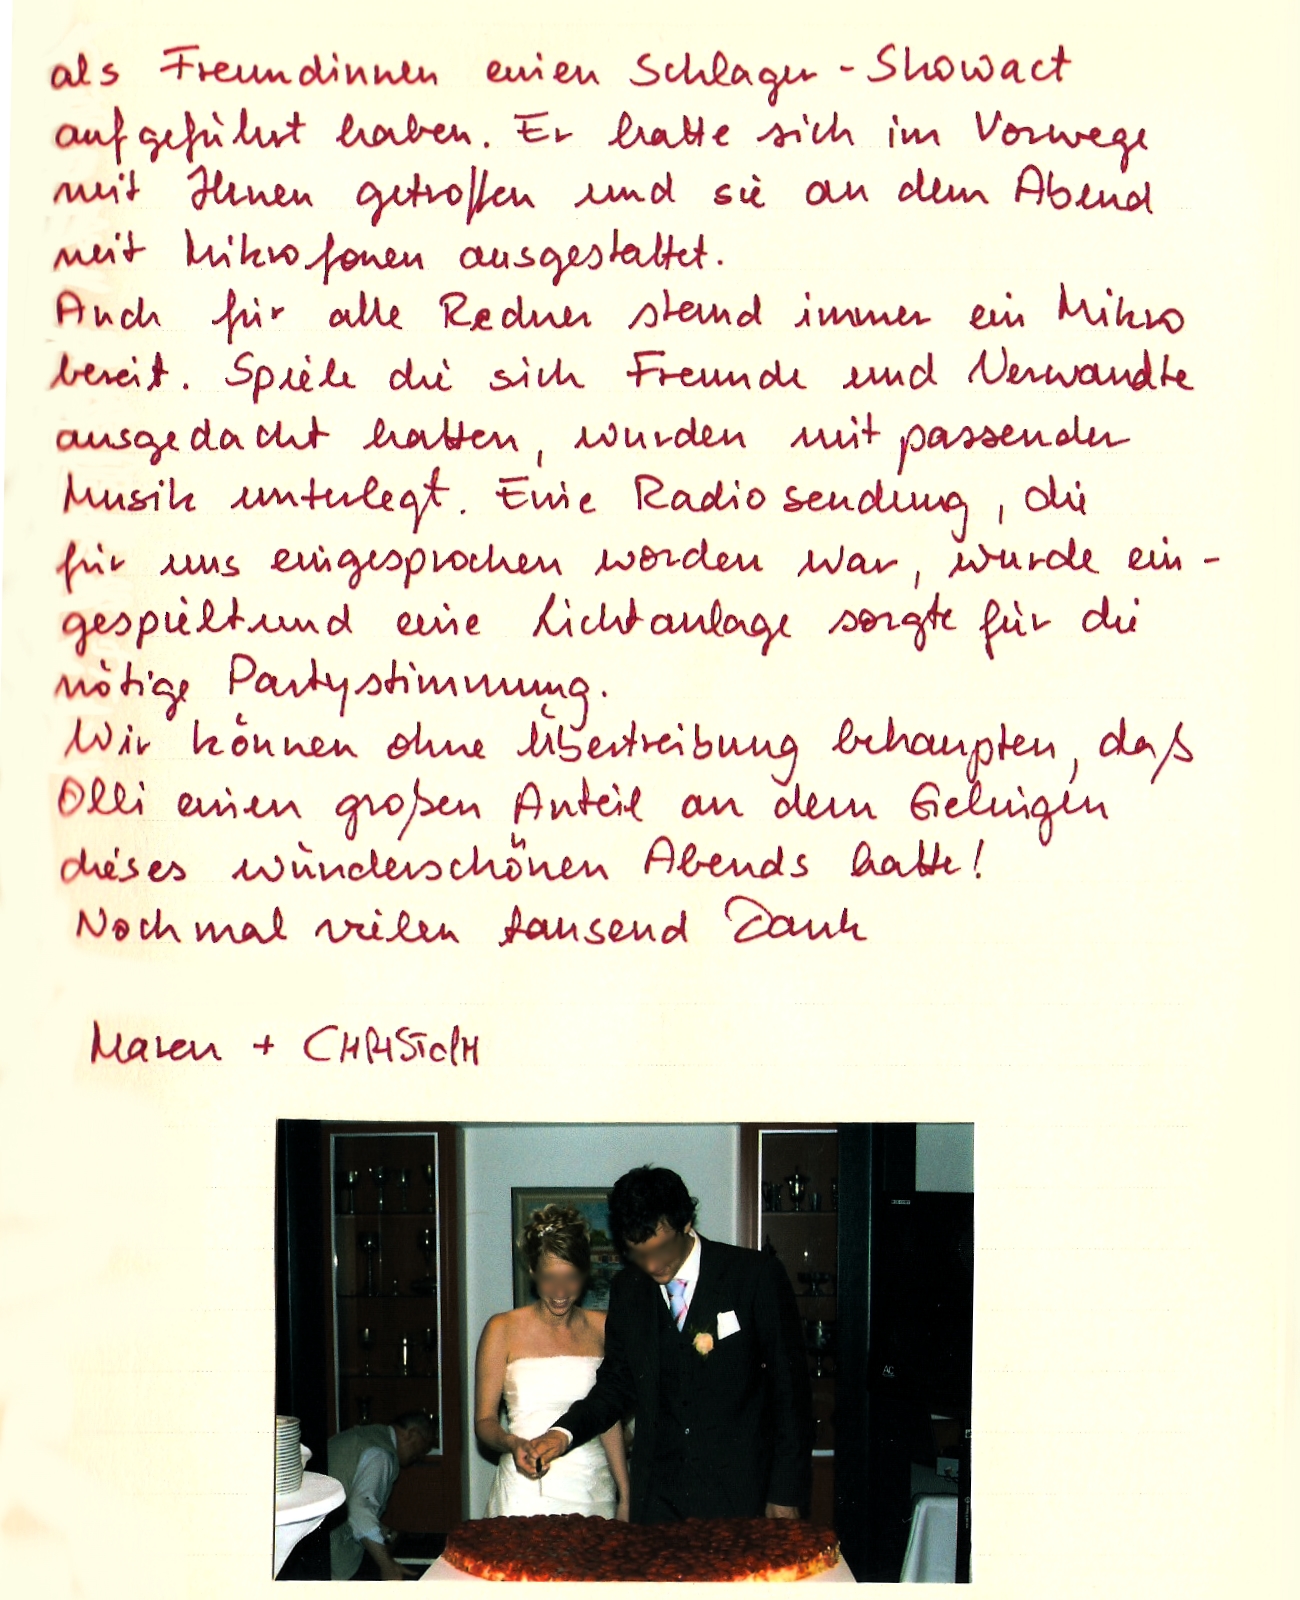 als Freundinnen einen Schlager-Showact
aufgeführt haben. Er hatte sich im Vorwege
mit Ihnen getroffen und sie an dem Abend
mit Mikrofonen ausgestattet.
Auch für alle Redner stand immer ein Mikro
bereit. Spiele die sich Freunde und Verwandte
ausgedacht hatten, wurden mit passender
Musik unterlegt. Eine Radiosendung, die
für uns eingesprochen worden war, wurde ein-
gespielt und eine Lichtanlage sorgte für die
nötige Partystimmung.
Wir können ohne Übertreibung behaupten, daß
Olli einen großen Anteil an dem Gelingen
dieses wunderschönen Abends hatte!
Nochmal vielen tausend Dank
Maren + CHRISTOPH